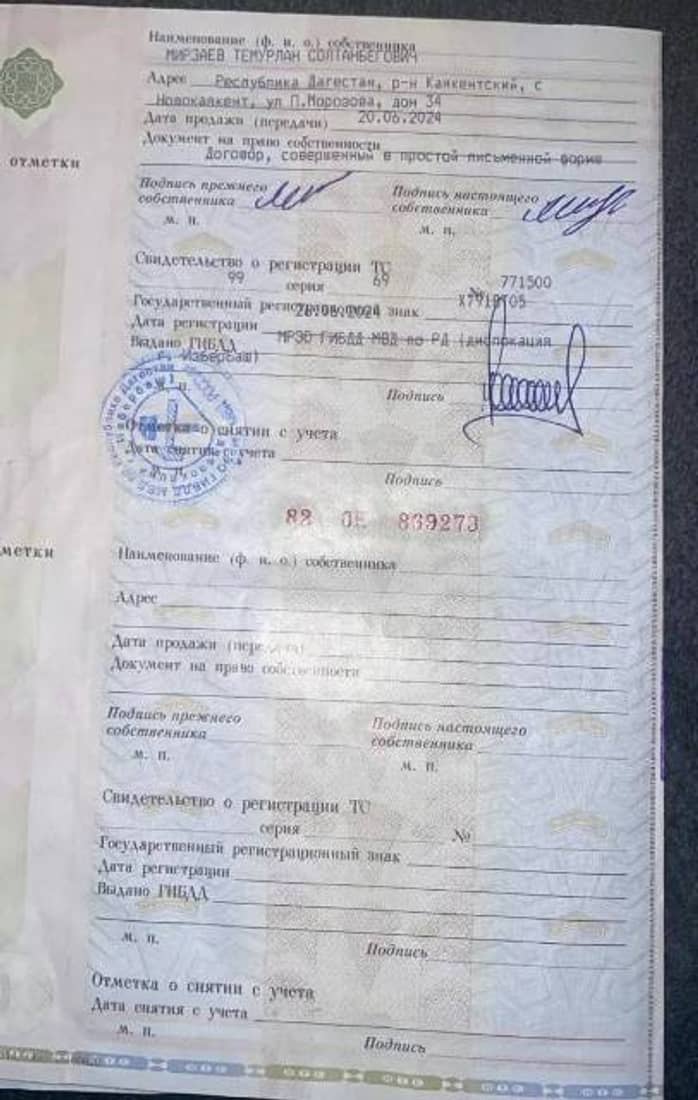 отметки
Наименование (ф. и. о.) собственника
МИРЗАЕВ ТЕМУРЛАН СОЛТАНБЕГОВИЧ
Адрес Республика Дагестан, р-н Каякентский, с
Новокаякент, ул П.Морозова, дом 34
Дата продажи (передачи) 20.06.2024
Документ на право собственности
Договор, совершенный в простой письменной форме
Подпись прежнего собственника
Подпись настоящего собственника
м. п. м. п.
Свидетельство о регистрации ТС
99 69 серия № 771500
Государственный регистрационный знак
Дата регистрации 2024
Выдано ГИБДД МРЭО ГИБДД МВД по РД (дислокация
г. Избербаш)
м. п. Подпись
Отметка о снятии с учета
Дата снятия с учета
м. п. Подпись
869273
метки
Наименование (ф. и. о.) собственника
Адрес
Дата продажи (передачи)
Документ на право собственности
Подпись прежнего собственника
Подпись настоящего собственника
м. п. м. п.
Свидетельство о регистрации ТС
серия №
Государственный регистрационный знак
Дата регистрации
Выдано ГИБДД
м. п. Подпись
Отметка о снятии с учета
Дата снятия с учета
м. п. Подпись